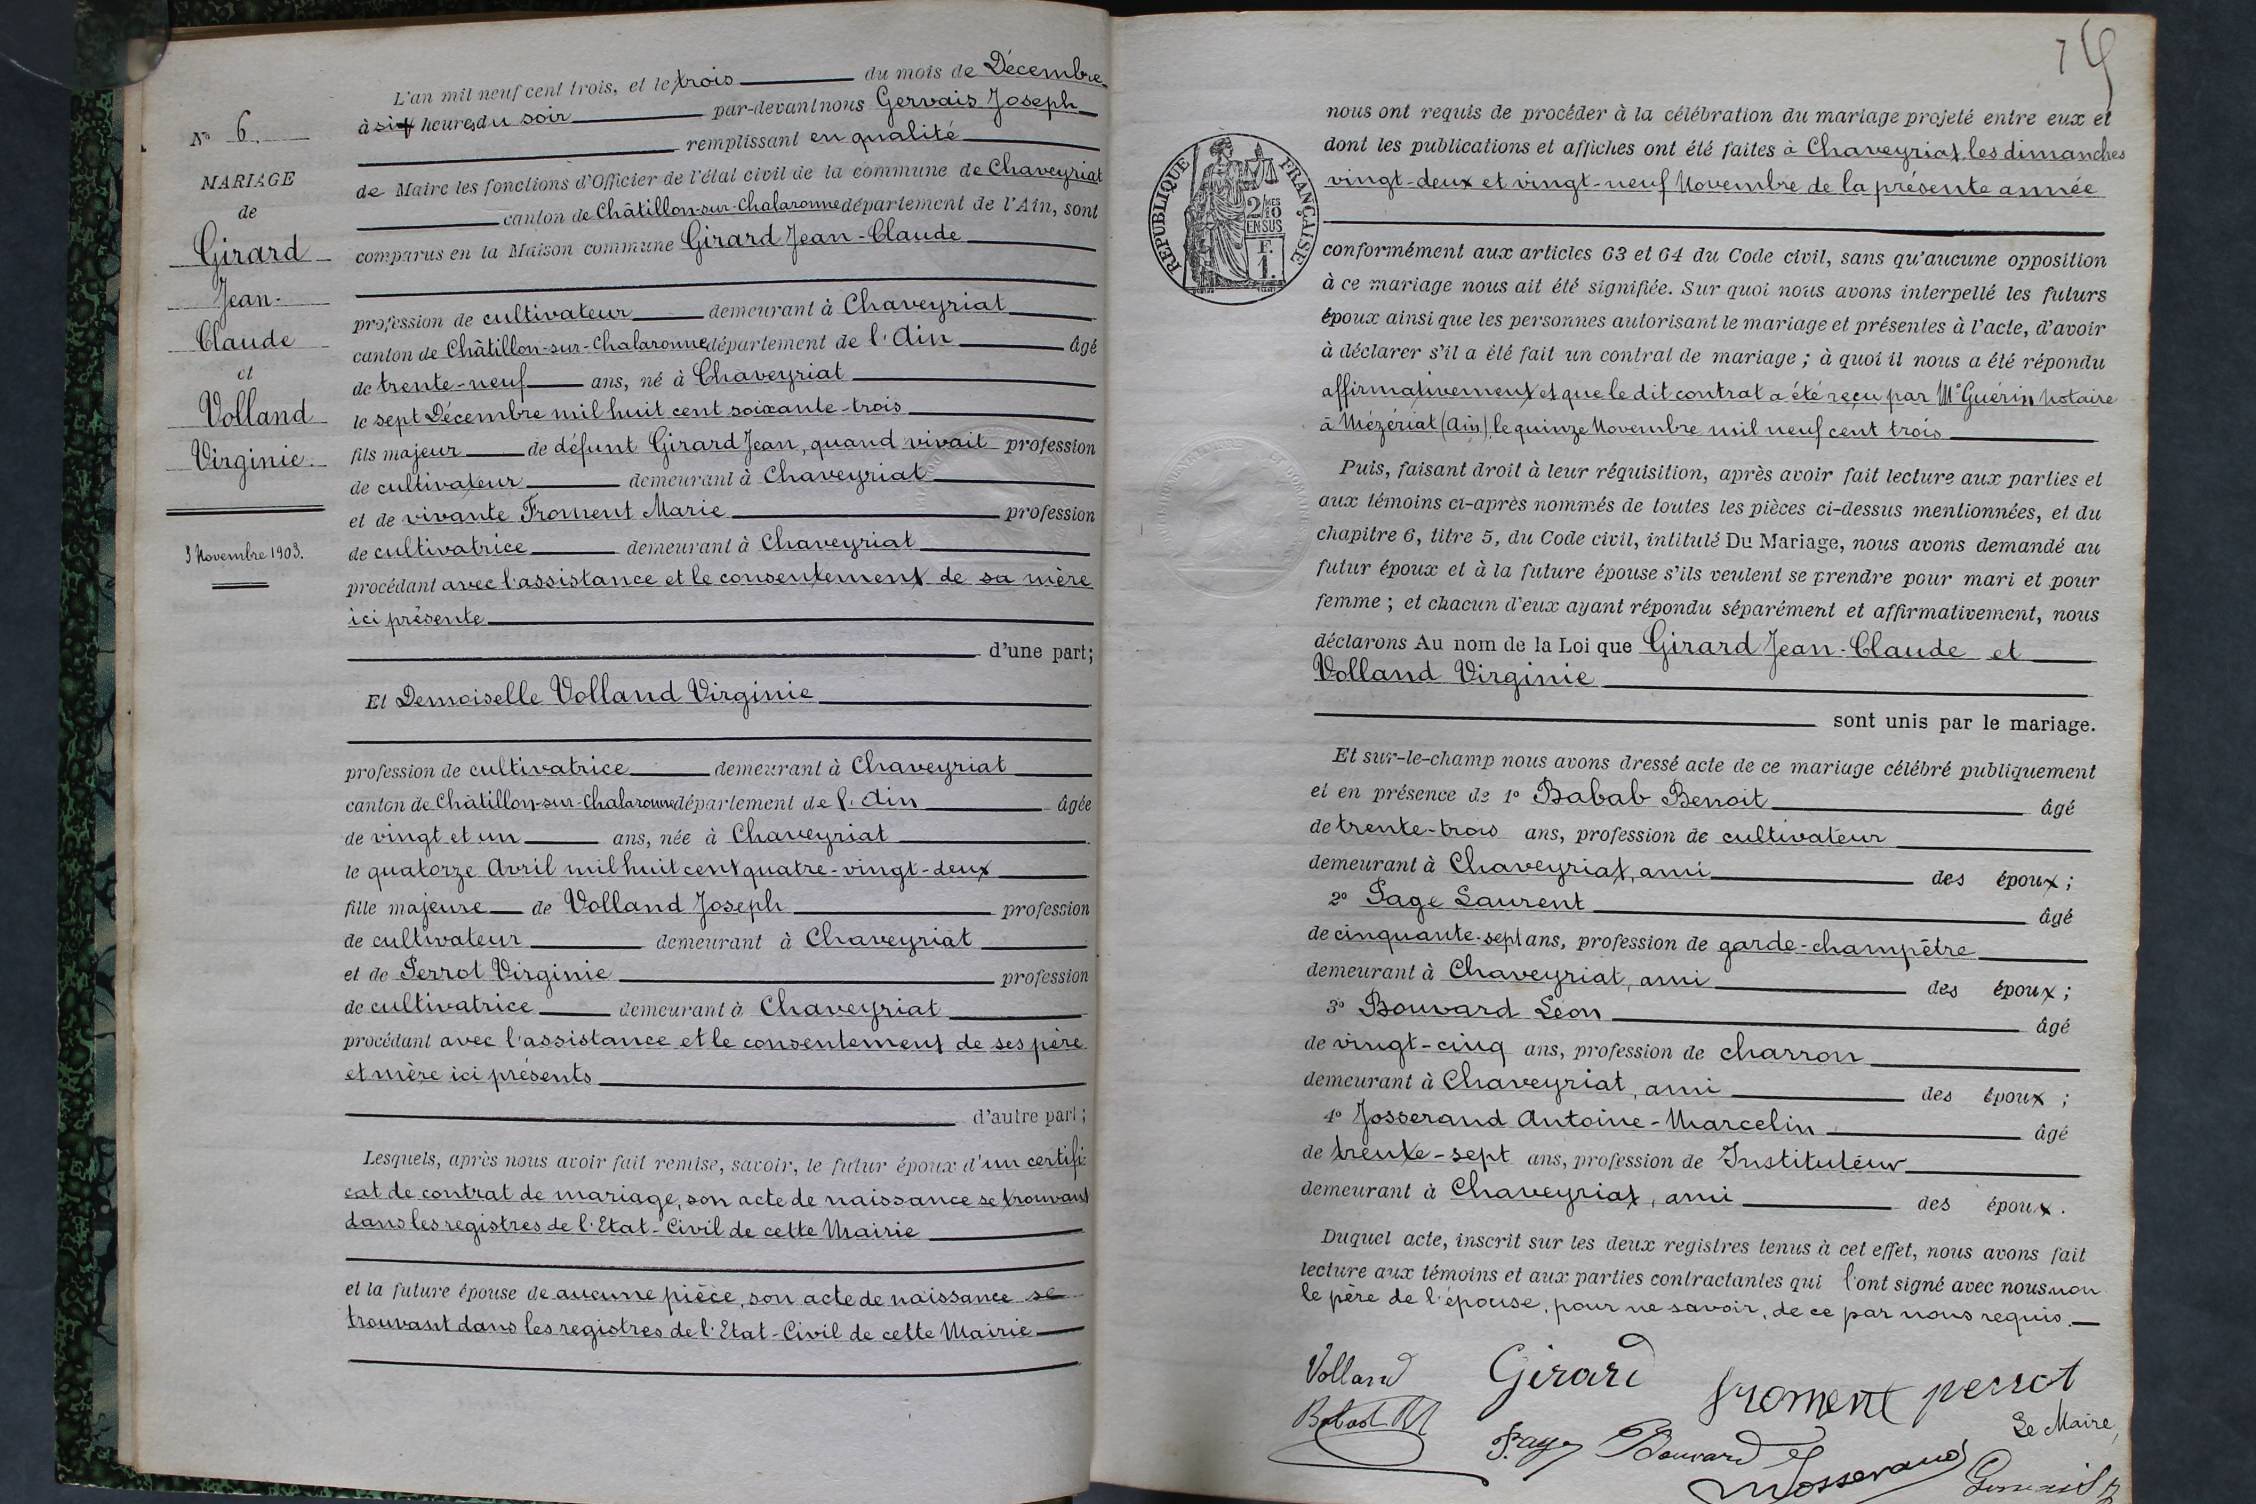 N° 6.
MARIAGE
de
Girard
Jean-
Claude
et
Volland
Virginie.
3 Novembre 1903.
L'an mil neuf cent trois, et le trois du mois de Décembre
à six heures du soir par-devant nous Gervais Joseph
remplissant en qualité
de Maire les fonctions d'Officier de l'état civil de la commune de Chaveyriat
canton de Châtillon-sur-Chalaronne département de l'Ain, sont
comparus en la Maison commune Girard Jean-Claude
profession de cultivateur demeurant à Chaveyriat
canton de Châtillon-sur-Chalaronne département de l'Ain âgé
de trente-neuf ans, né à Chaveyriat
le sept Décembre mil huit cent soixante-trois
fils majeur de défunt Girard Jean, quand vivait profession
de cultivateur demeurant à Chaveyriat
et de vivante Froment Marie profession
de cultivatrice demeurant à Chaveyriat
procédant avec l'assistance et le consentement de sa mère
ici présente
d'une part;
Et Demoiselle Volland Virginie
profession de cultivatrice demeurant à Chaveyriat
canton de Châtillon-sur-Chalaronne département de l'Ain âgée
de vingt et un ans, née à Chaveyriat
le quatorze Avril mil huit cent quatre-vingt-deux
fille majeure de Volland Joseph profession
de cultivateur demeurant à Chaveyriat
et de Perrot Virginie profession
de cultivatrice demeurant à Chaveyriat
procédant avec l'assistance et le consentement de ses père
et mère ici présents
d'autre part;
Lesquels, après nous avoir fait remise, savoir, le futur époux d'un certifi-
cat de contrat de mariage, son acte de naissance se trouvant
dans les registres de l'Etat-Civil de cette Mairie
et la future épouse de aucune pièce, son acte de naissance se
trouvant dans les registres de l'Etat-Civil de cette Mairie
RÉPUBLIQUE FRANÇAISE
2/10ES
EN SUS
F.
1.
nous ont requis de procéder à la célébration du mariage projeté entre eux et
dont les publications et affiches ont été faites à Chaveyriat les dimanches
vingt-deux et vingt-neuf Novembre de la présente année
conformément aux articles 63 et 64 du Code civil, sans qu'aucune opposition
à ce mariage nous ait été signifiée. Sur quoi nous avons interpellé les futurs
époux ainsi que les personnes autorisant le mariage et présentes à l'acte, d'avoir
à déclarer s'il a été fait un contrat de mariage ; à quoi il nous a été répondu
affirmativement et que le dit contrat a été reçu par Me Guérin Notaire
à Mézériat (Ain), le quinze Novembre mil neuf cent trois
Puis, faisant droit à leur réquisition, après avoir fait lecture aux parties et
aux témoins ci-après nommés de toutes les pièces ci-dessus mentionnées, et du
chapitre 6, titre 5, du Code civil, intitulé Du Mariage, nous avons demandé au
futur époux et à la future épouse s'ils veulent se prendre pour mari et pour
femme ; et chacun d'eux ayant répondu séparément et affirmativement, nous
déclarons Au nom de la Loi que Girard Jean-Claude et
Volland Virginie
sont unis par le mariage.
Et sur-le-champ nous avons dressé acte de ce mariage célébré publiquement
et en présence de 1° Babab Benoit âgé
de trente-trois ans, profession de cultivateur
demeurant à Chaveyriat, ami des époux ;
2° Page Laurent âgé
de cinquante-sept ans, profession de garde-champêtre
demeurant à Chaveyriat, ami des époux ;
3° Bouvard Léon âgé
de vingt-cinq ans, profession de charron
demeurant à Chaveyriat, ami des époux ;
4° Josserand Antoine-Marcelin âgé
de trente-sept ans, profession de Instituteur
demeurant à Chaveyriat, ami des époux.
Duquel acte, inscrit sur les deux registres tenus à cet effet, nous avons fait
lecture aux témoins et aux parties contractantes qui l'ont signé avec nous non
le père de l'épouse, pour ne savoir, de ce par nous requis.
Volland Girard froment perrot
Le Maire,
Page Bouvard Josserand